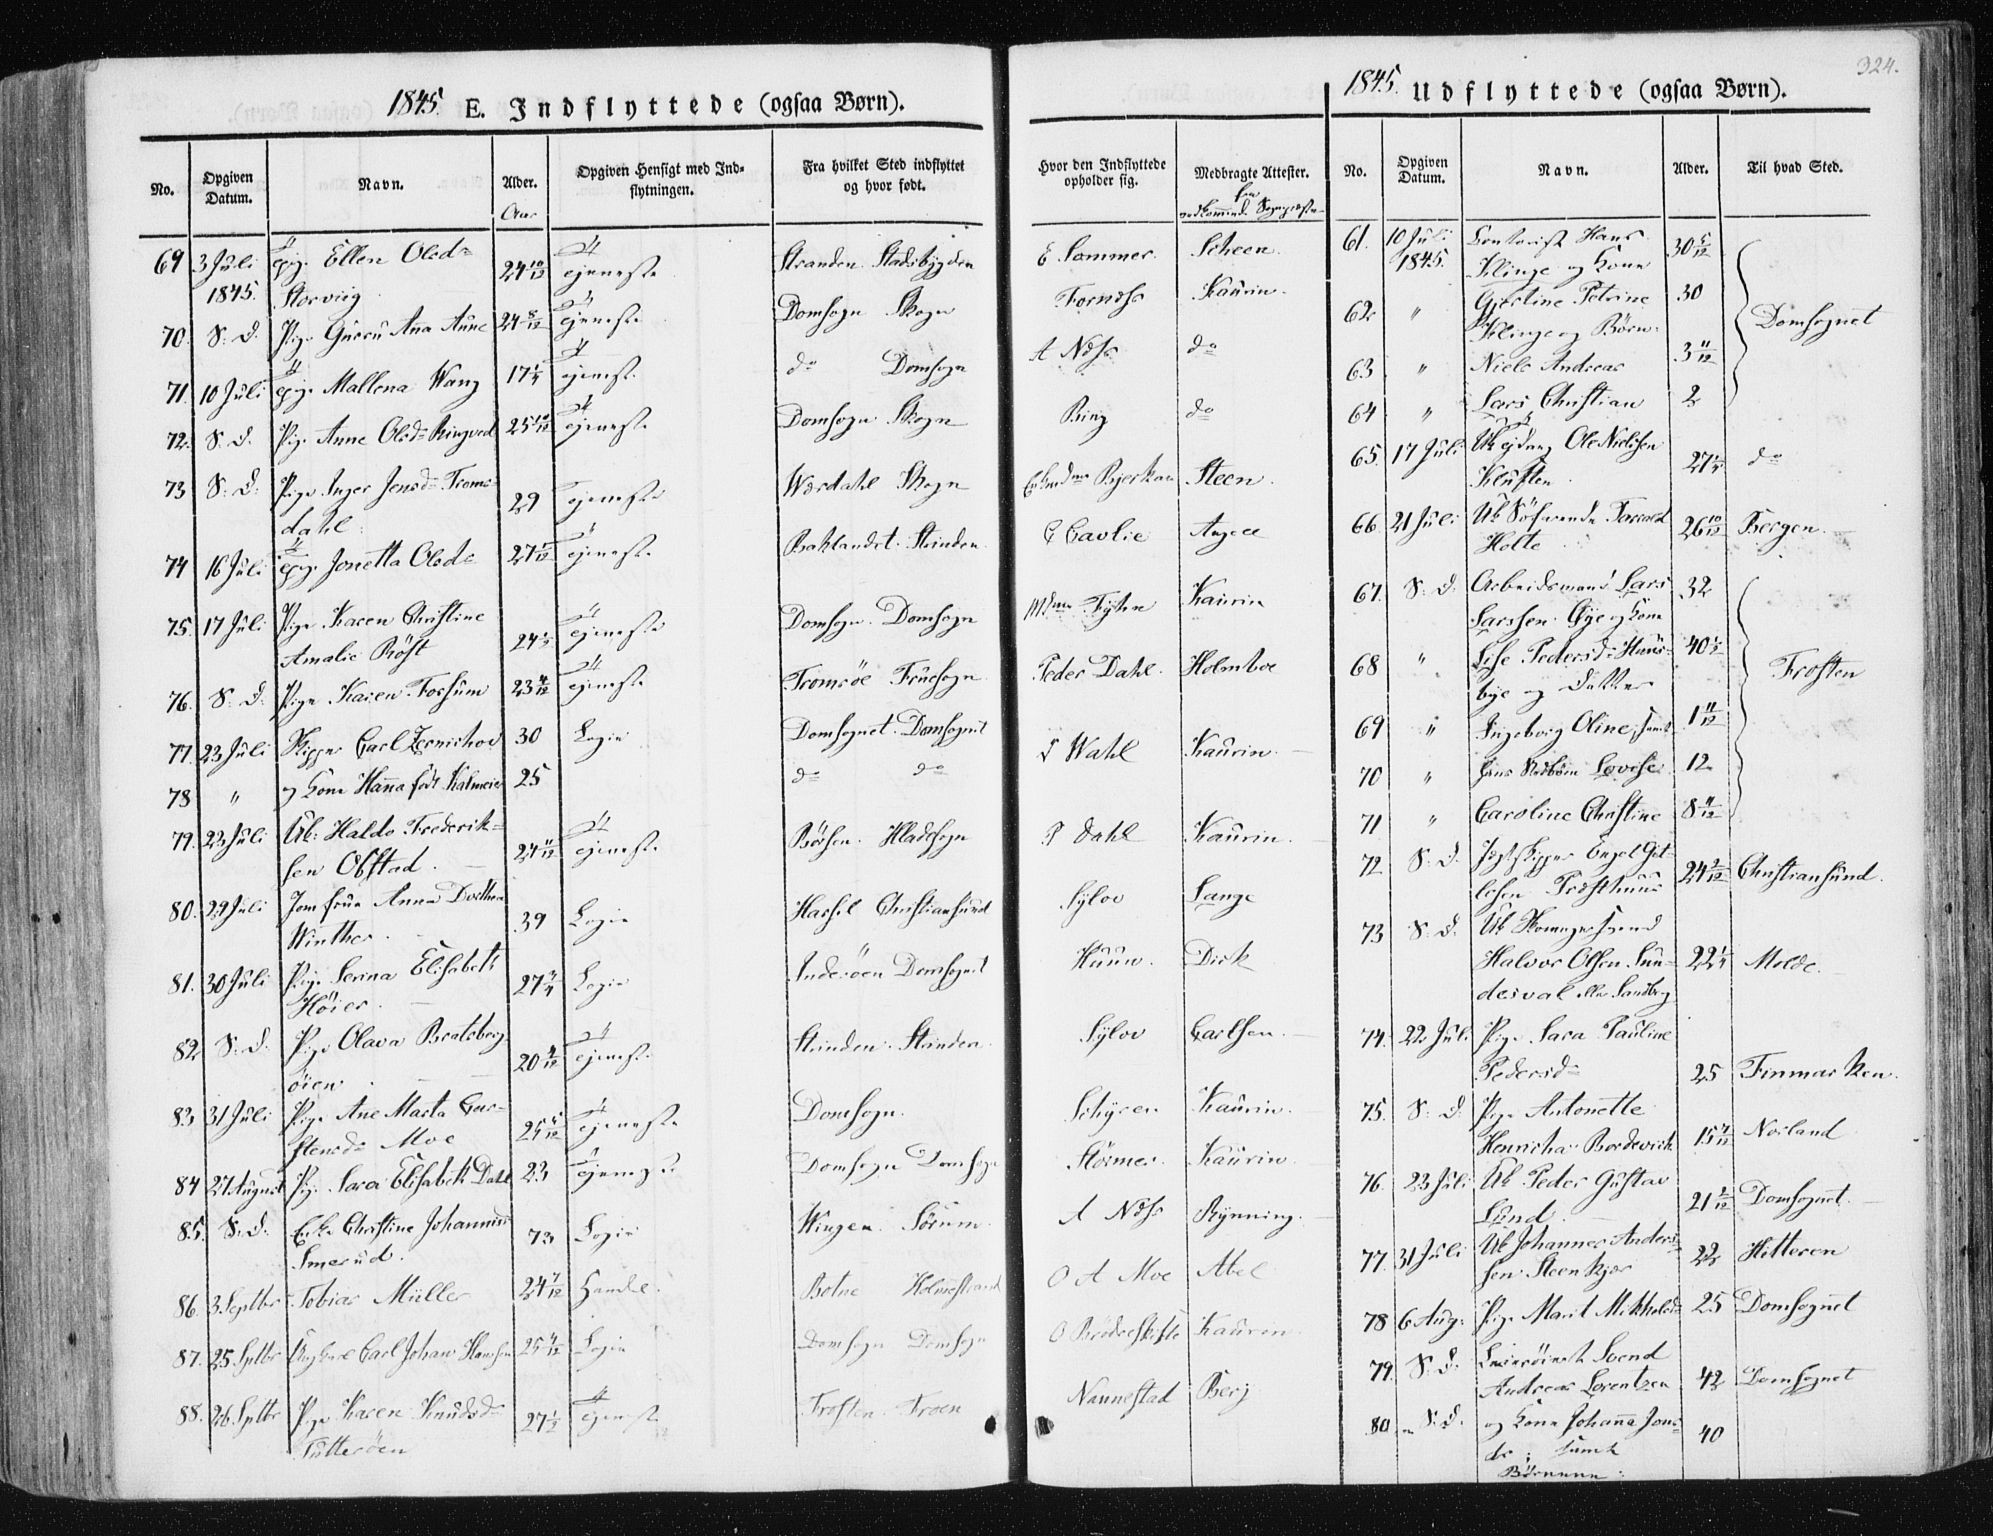 324.
1845. E. Indflyttede (ogsaa Børn).
No. Opgiven Datum. Navn. Alder. Opgiven Hensigt med Indflytningen. Fra hvilket Sted indflyttet og hvor født. Hvor den Indflyttede opholder sig. Medbragte Attester.
Aar
69 3 Juli 1845. Pige Ellen Olsd. Storviig 24 10/12 Tjeneste Stranden Stadsbygden E Sommer Scheen
70. S. D. Pige Guru Ana Aune 24 8/12 Tjeneste Domsogn Skogn Kaurin.
71. 10 Juli Pige Mallena Wang 17 1/4 Tjenest. do Domsogn A Ndss do
72. S. D. Pige Anne Olsd. Ringved 25 10/12 Tjeneste Domsogn Skogn Ring do
73 S. D. Pige Inger Jensd. Tromsdahl 29 Tjeneste Wærdahl Skogn Bjerkan Steen.
74 16 Juli Pige Jonetta Olsd. 27 1/12 Tjeneste Baklandet Strinden Angell
75. 17 Juli Pige Karen Christine Amalie Röst 24 1/2 Tjeneste Domsogn. Domsogn Kaurin
76. S. D. Pige Karen Forsum 23 4/12 Tjeneste Tromsöe Fruesogn Peder Dahl. Holmboe
77. 23 Juli Skipper Carl 30 Logie Domsognet Domsognet Wahl Kaurin.
78 " og Kone Hanna født Kalmeier 25 do do
79. 23 Juli Uk: Haldo Frederiksen Olstad. 24 11/12 Tjeneste Börsen. Hladesogn P Dahl Kaurin.
80. 29 Juli Jomfrue Anna Dorthea Winther. 39 Logie Hassel Christiansund Sylov Lange
81. 30 Juli Pige Serina Elisabeth Höier. 27 3/4 Logie Inderöen Domsognet Huun. Dick
82 S. D. Pige Olava Bratsbergöien 20 4/12 Tjeneste Strinden. Strinden Sylov Carlsen.
83 31 Juli Pige Ane Marta Carstensd. Moe 25 5/12 Tjeneste Domsogn. Kaurin.
84 27 August Pige Sara Elisabeth Dahl 23 Tjeneste Domsogn Domsogn Störmer. Kaurin.
85. S. D. Enke Christine Johannesd. Smerud. 73 Logie Wingen. Sörum. A Ndss Rynning.
86. 3 Septbr Tobias Müller 24 7/12 Handel. Botne Holmestrand O A Moe Abel
87. 25 Septbr Ungkarl Carl Johan Hansen Logie Domsogn Domsogn Kaurin
88. 26 Septbr Pige Karen Knudsd. Tutteröen 27 1/2 Tjeneste Frosten. Froen Nannestad Berg
1845. Udflyttede (ogsaa Børn).
No. Opgiven Datum. Navn. Alder. Til hvad Sted.
61. 10 Juli 1845. Contorist Hans Klinge og Kone 30 5/12 Domsognet
62 " Petrine Klinge og Börn: 30
63 " Niels Andreas 3 11/12
64 " Lars Christian 2
65. 17 Juli Ole Nielsen Kluften 27 1/4 do
66 21 Juli Uk Söfarende Holte 26 10/12 Bergen
67. S. D. Arbeidsmand Lars Larssen Öye og Kone 32 Frosten
68 " Lise Pedersd. Huusbye og Datter 40 1/2
69 " Ingeborg Oline, samt 1 11/12
70 " hans Lovise 12
71 " Caroline Christine 8 11/12
72 S. D. Jagtskipper Engel 24 2/12 Christiansund.
73 S. D. Uk Halvor Olsen Sundesval eller Sandberg 22 1/4 Molde.
74. 22 Juli Pige Sara Pauline Pedersd. 25 Finmarken.
75. S. D. Pige Antonette Henricha Bordevick 15 7/12 Norland
76. 23 Juli Uk Peder Gustav Lund 21 2/12 Domsognet.
77. 31 Juli Uk Johannes Andersen Steenkjær 22 Hitteren
78 6 Aug: Pige Marit Mikkelsd. 25 Domsognet
79. S. D. Svend Andreas Lorentzen 42 Domsognet
80 S. D. og Kone Johanna Jonsdr: samt Börnene: 40